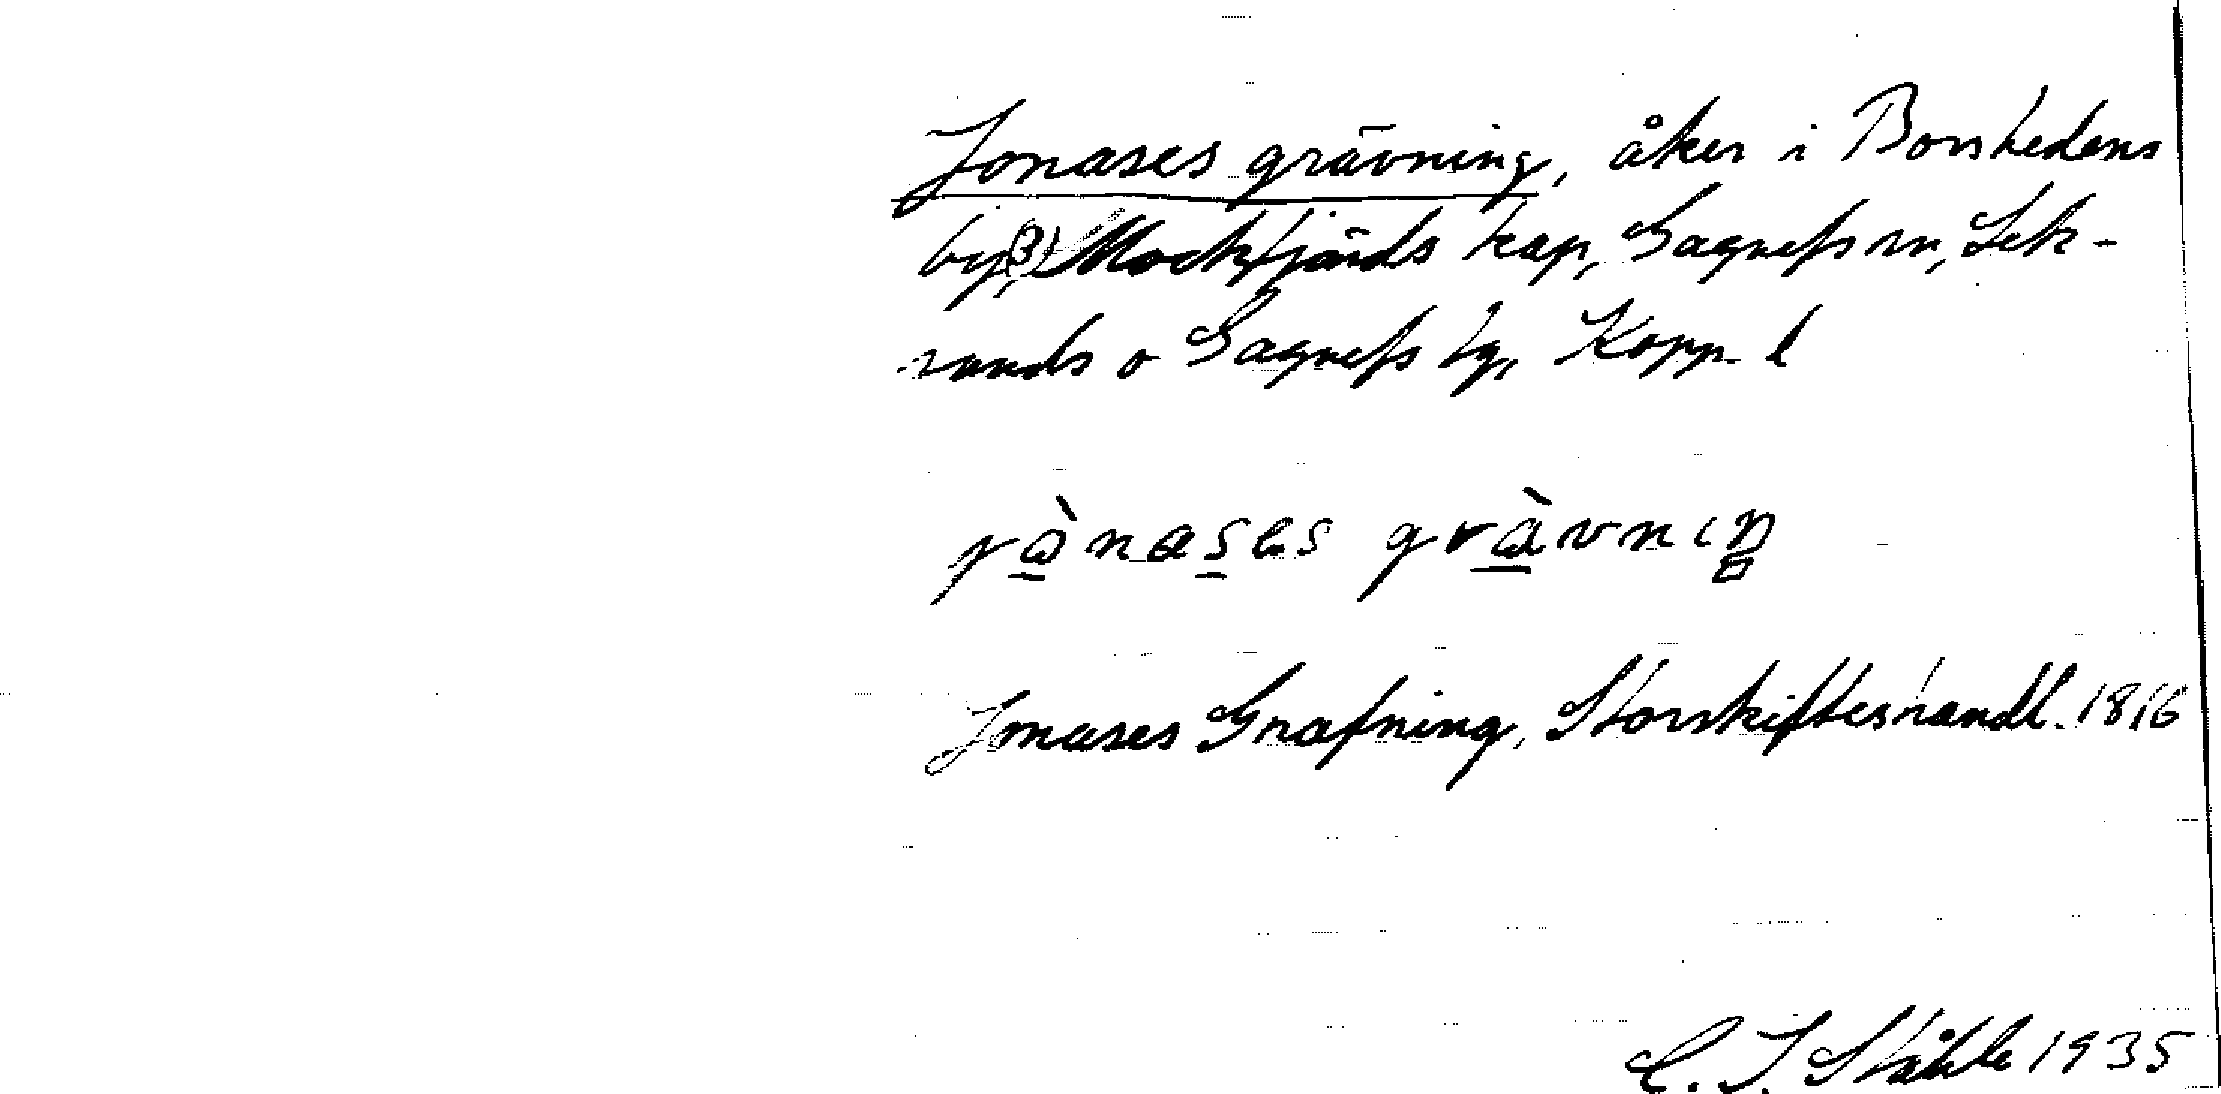 Jonases grävning, åker i Borshedens
by (3), Mockfjärds kap, Gagnefs sn, Lek-
sands o Gagnefs tg, Kopp. l
jònases gràvniŋ
Jonases Grafning, Storskifteshandl. 1816
C. I. Ståhle 1935